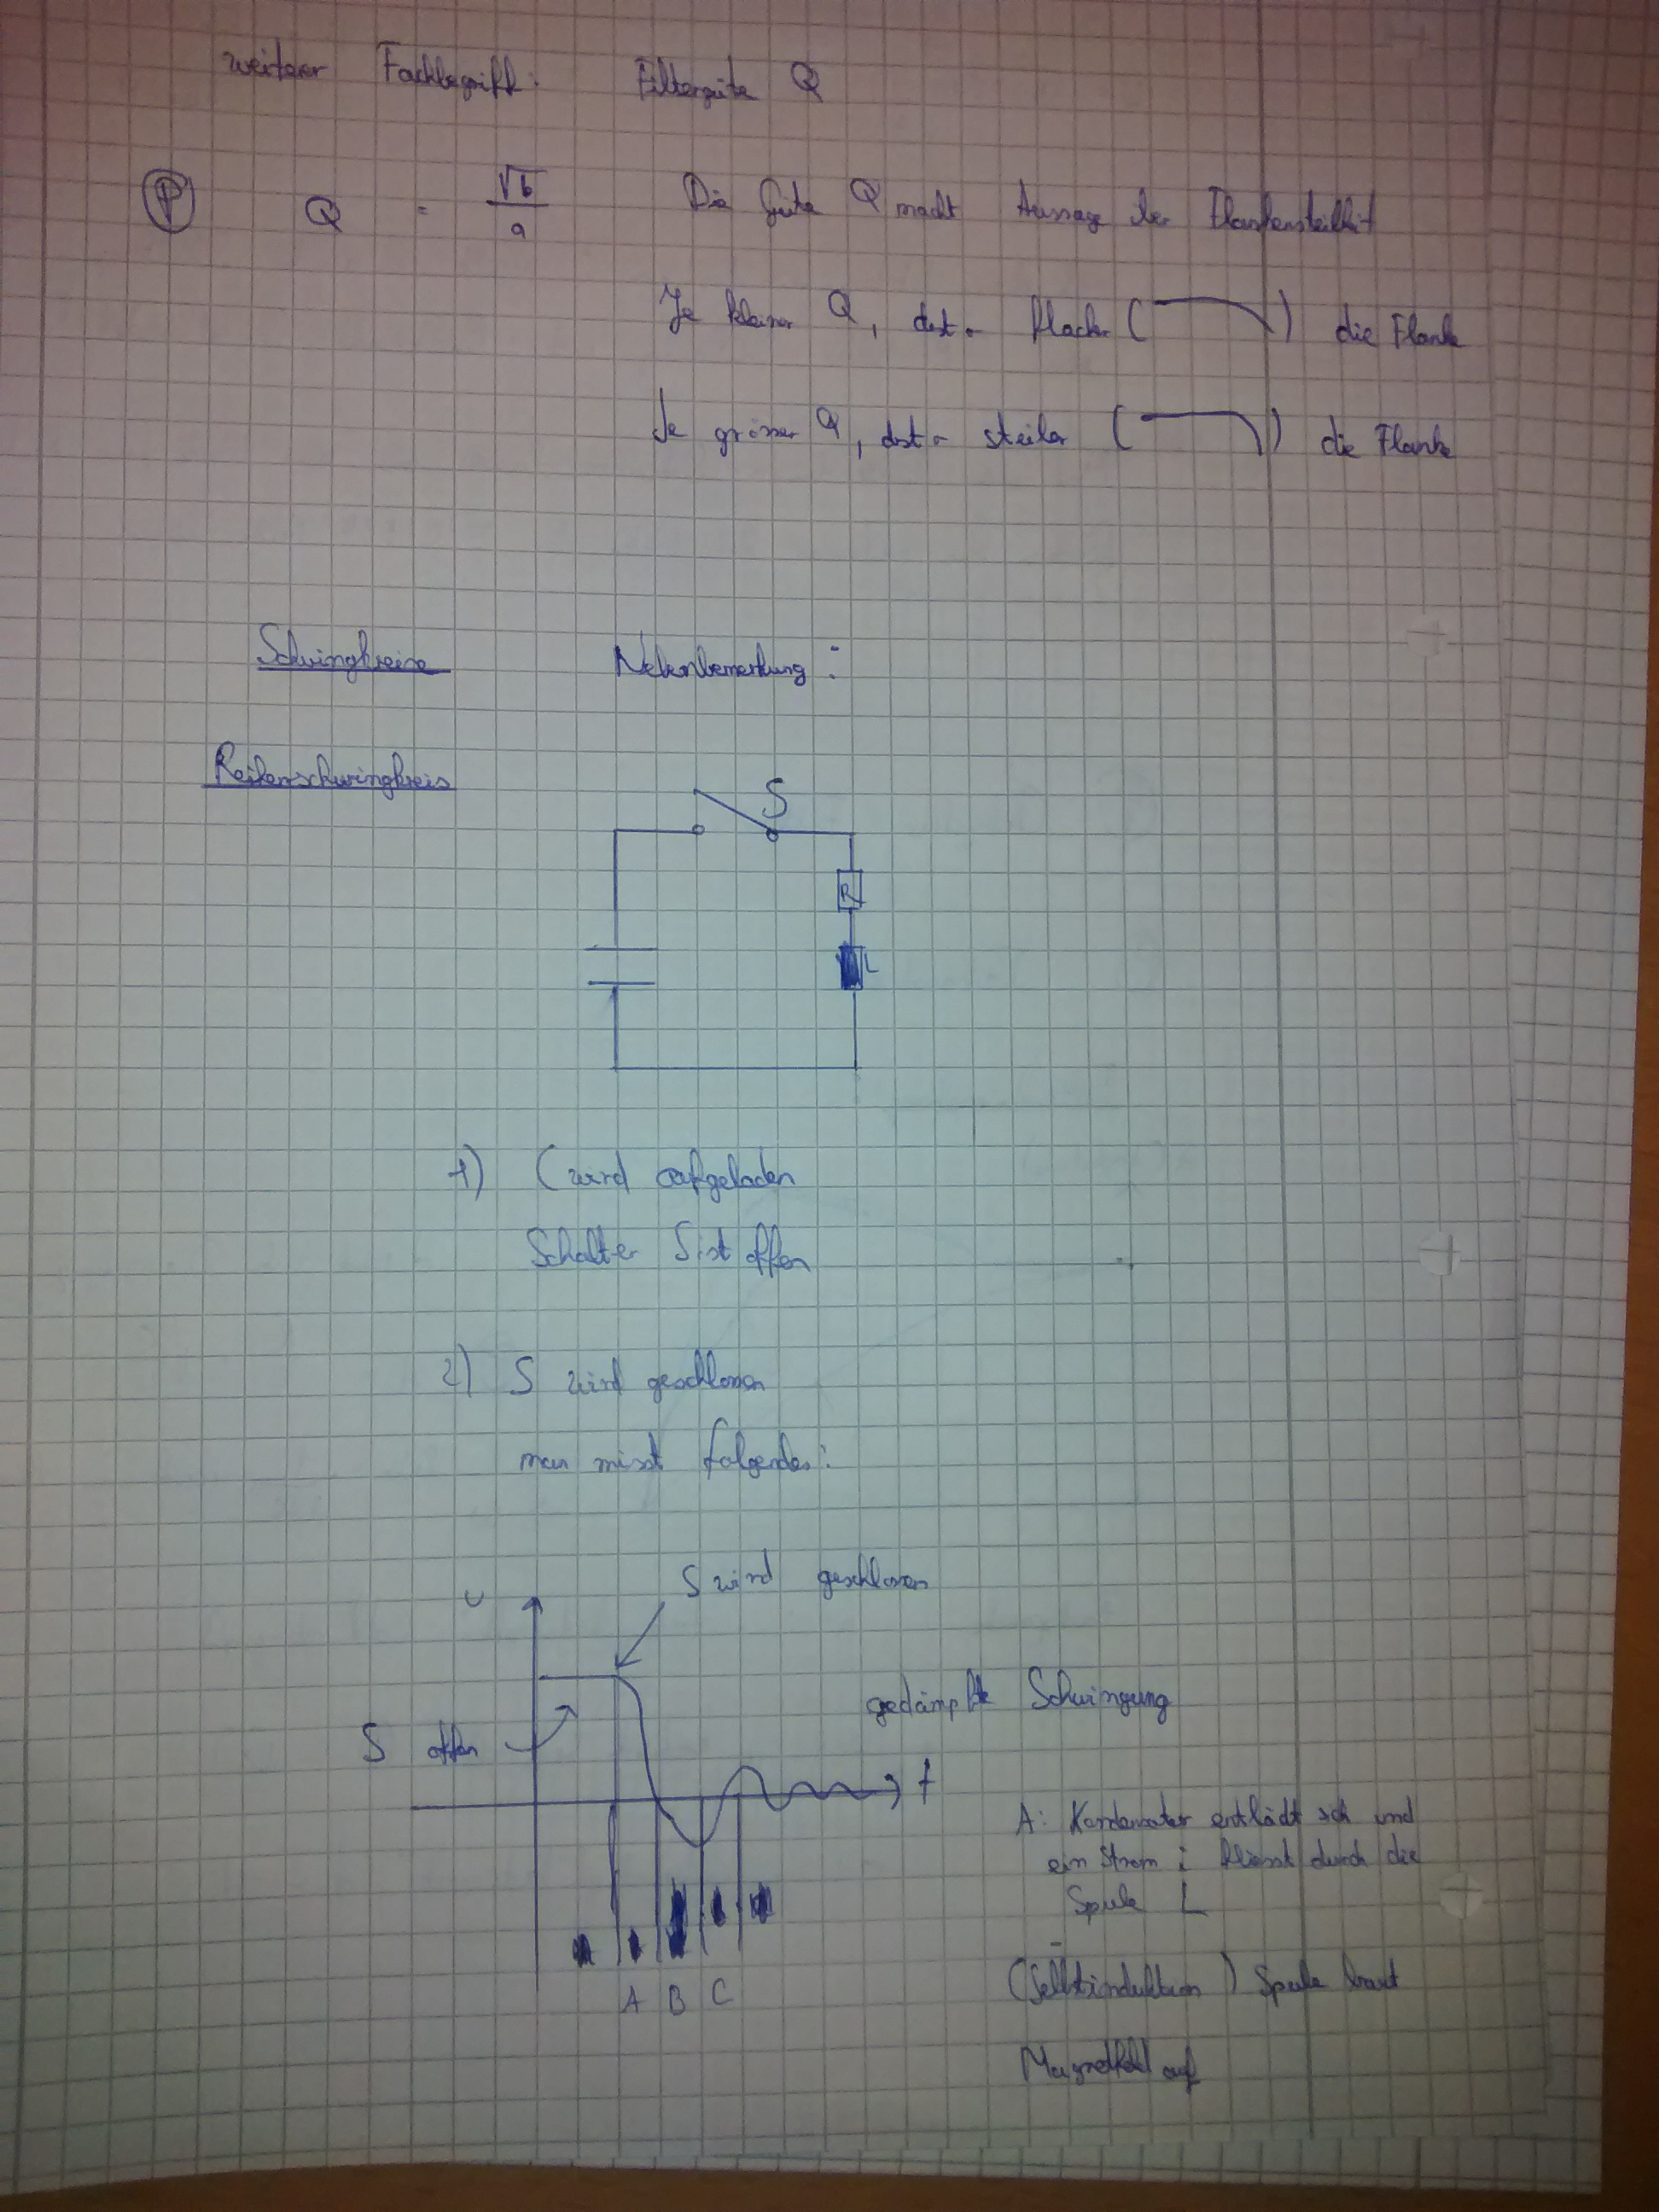 weiterer Fachbegriff: Filtergüte Q
P Q = √b / a Die Güte Q macht Aussage über Flankensteilheit
Je kleiner Q, desto flacher ( ) die Flanke
Je grösser Q, desto steiler ( ) die Flanke
Schwingkreise Nebenbemerkung:
Reihenschwingkreis
S
R
L
1) C wird aufgeladen
Schalter S ist offen
2) S wird geschlossen
man misst folgendes:
S wird geschlossen
U
gedämpfte Schwingung
S offen
t
A: Kondensator entlädt sich und
ein Strom i fliesst durch die
Spule L
A B C
(Selbstinduktion) Spule baut
Magnetfeld auf